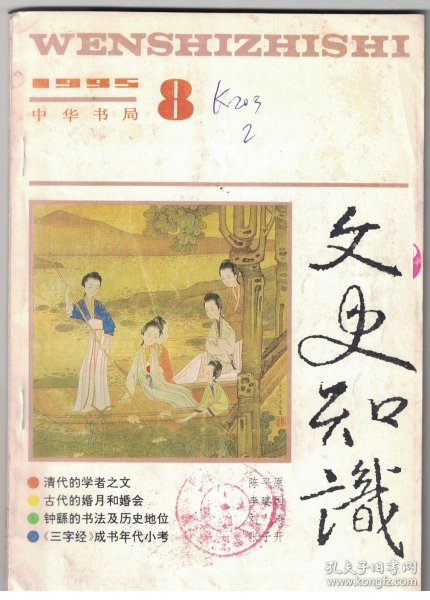 WENSHIZHISHI
1995
8
中华书局
K203
2
文史知識
清代的学者之文 陈平原
古代的婚月和婚会
钟繇的书法及历史地位
《三字经》成书年代小考
孔夫子旧书网
www.kongfz.com